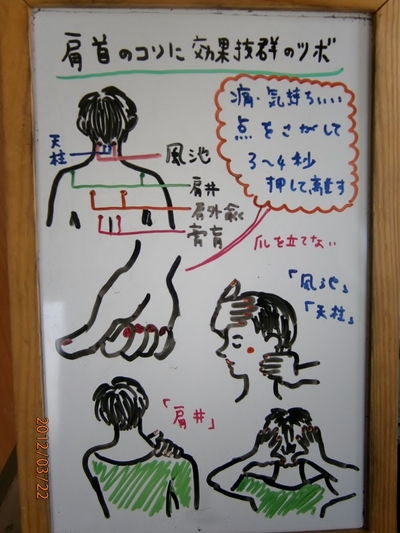 肩首のコリに効果抜群のツボ
痛・気持ちいい
点をさがして
3〜4秒
押して離す
天柱
風池
肩井
肩外兪
膏肓
爪を立てない
「風池」
「天柱」
「肩井」
2012/03/22